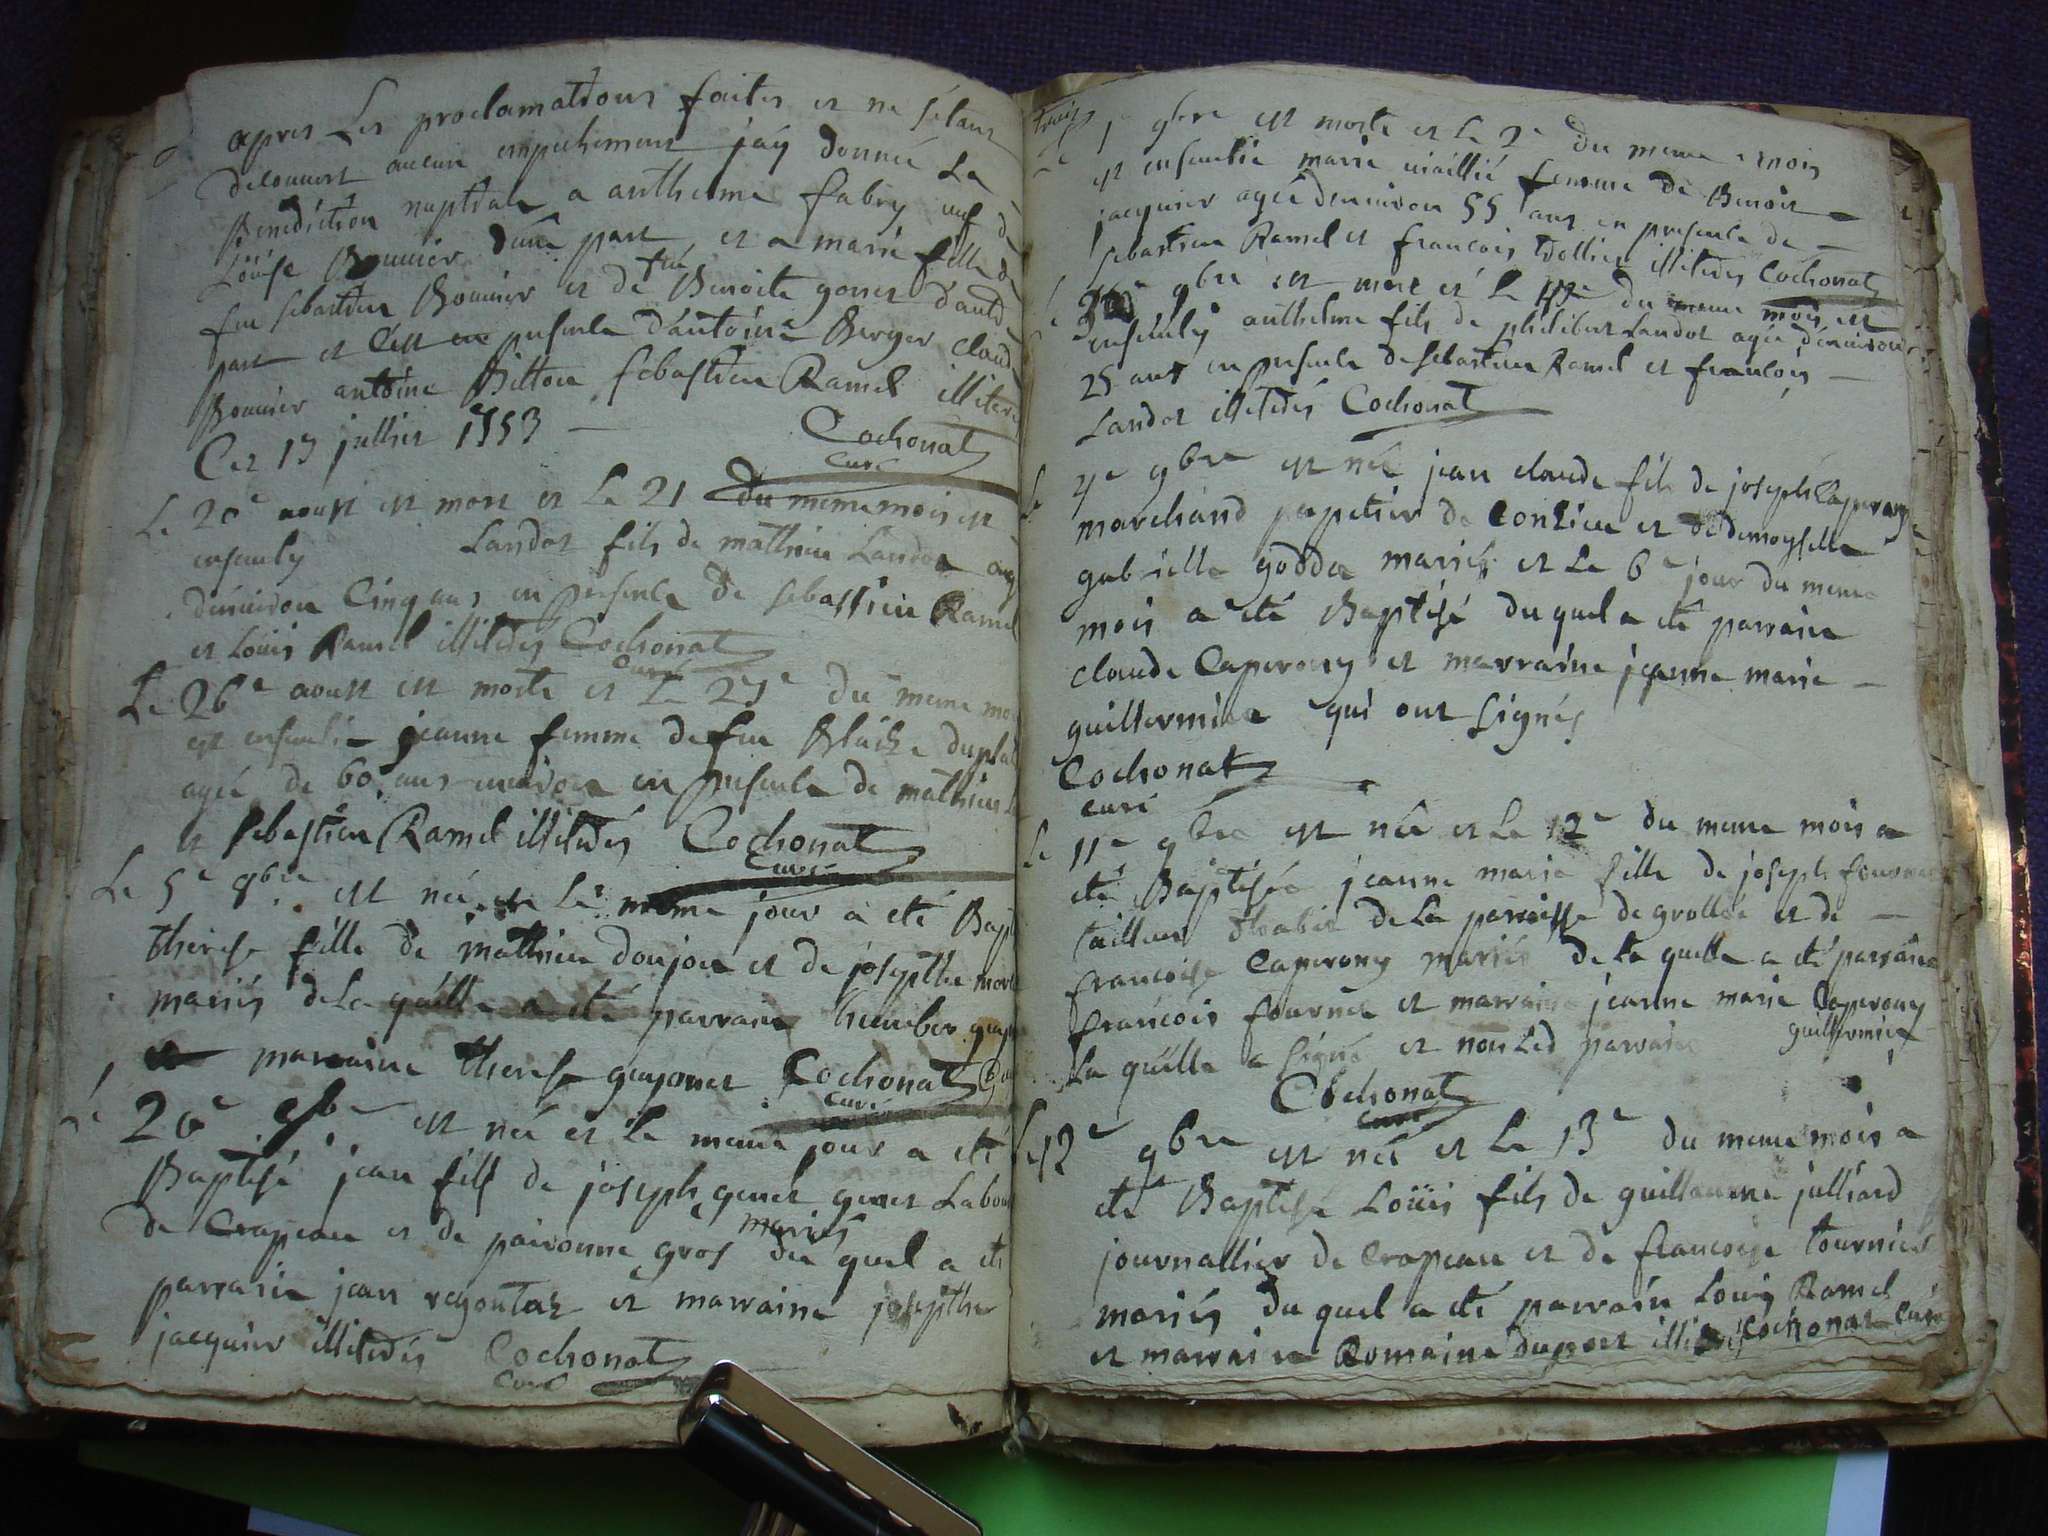 apres Les proclamations faites et ne s'etant
decouvert aucun empechement jay donnée La
Benediction nuptiale a anthelme fabry de
Loüise Bonnier d'une part et a marie fille de
feu sebastien Bonnier et de Benoite d'autre
part et c'est en presence d'antoine Berger claude
Bonnier antoine Billon sebastien Ramel illiteres
Ce 17 juillet 1753
Cochonat
curé
Le 20e aoust est mort et Le 21 du meme mois est
ensevely Landot fils de mathieu Landot
d'environ Cinq ans en presence de sebastien Ramel
et Loüis Ramel illiterés Cochonat
curé
Le 26e aoust est morte et Le 27e du meme
est ensevelie jeanne femme de feu Blaise
agée de 60 ans environ en presence de mathieu
et sebastien Ramel illiterés Cochonat
curé
Le 5e 8bre est née et Le meme jour a eté
therese fille de mathieu donjon et de josepthe
mariés de La quelle a eté parrain humber
et marraine therese guyonet Cochonat
curé
Le 20e est né et Le meme jour a eté
Baptisé jean fils de joseph genet
de Crapeau et de paironne gros mariés du quel a eté
parrain jean et marraine josepthe
jacquier illiterés Cochonat
curé
Le 1er 9bre est morte et Le 2e du meme mois
est ensevelie marie femme de Benoit
jacquier agée d'environ 55 ans en presence de
sebastien Ramel et francois illiterés Cochonat
Le 9bre est mort et Le du meme mois est
ensevely anthelme fils de philibert Landot agé d'environ
25 ans en presence de sebastien Ramel et francois
Landot illiterés Cochonat
Le 4e 9bre est né jean claude fils de joseph Caperony
marchand papetier de Conzieu et de demoyselle
gabrielle goddet mariés et Le 6e jour du meme
mois a eté Baptisé du quel a eté parrain
claude Caperony et marraine jeanne marie
guillermier qui ont signés
Cochonat
curé
Le 11e 9bre est née et Le 12e du meme mois a
eté Baptisée jeanne marie fille de joseph
tailleur d'habit de La parroisse de grollée et de
francoise Caperony mariés de La quelle a eté parrain
francois fournet et marraine jeanne marie Caperony
guillermier
La quelle a signé et non Led parrain
Cochonat
curé
Le 12e 9bre est né et Le 13e du meme mois a
eté Baptisé Loüis fils de guillaume julliard
journallier de Crapeau et de francoise tournier
mariés du quel a eté parrain Louis Ramel
et marraine Romaine dupont illiterés Cochonat curé